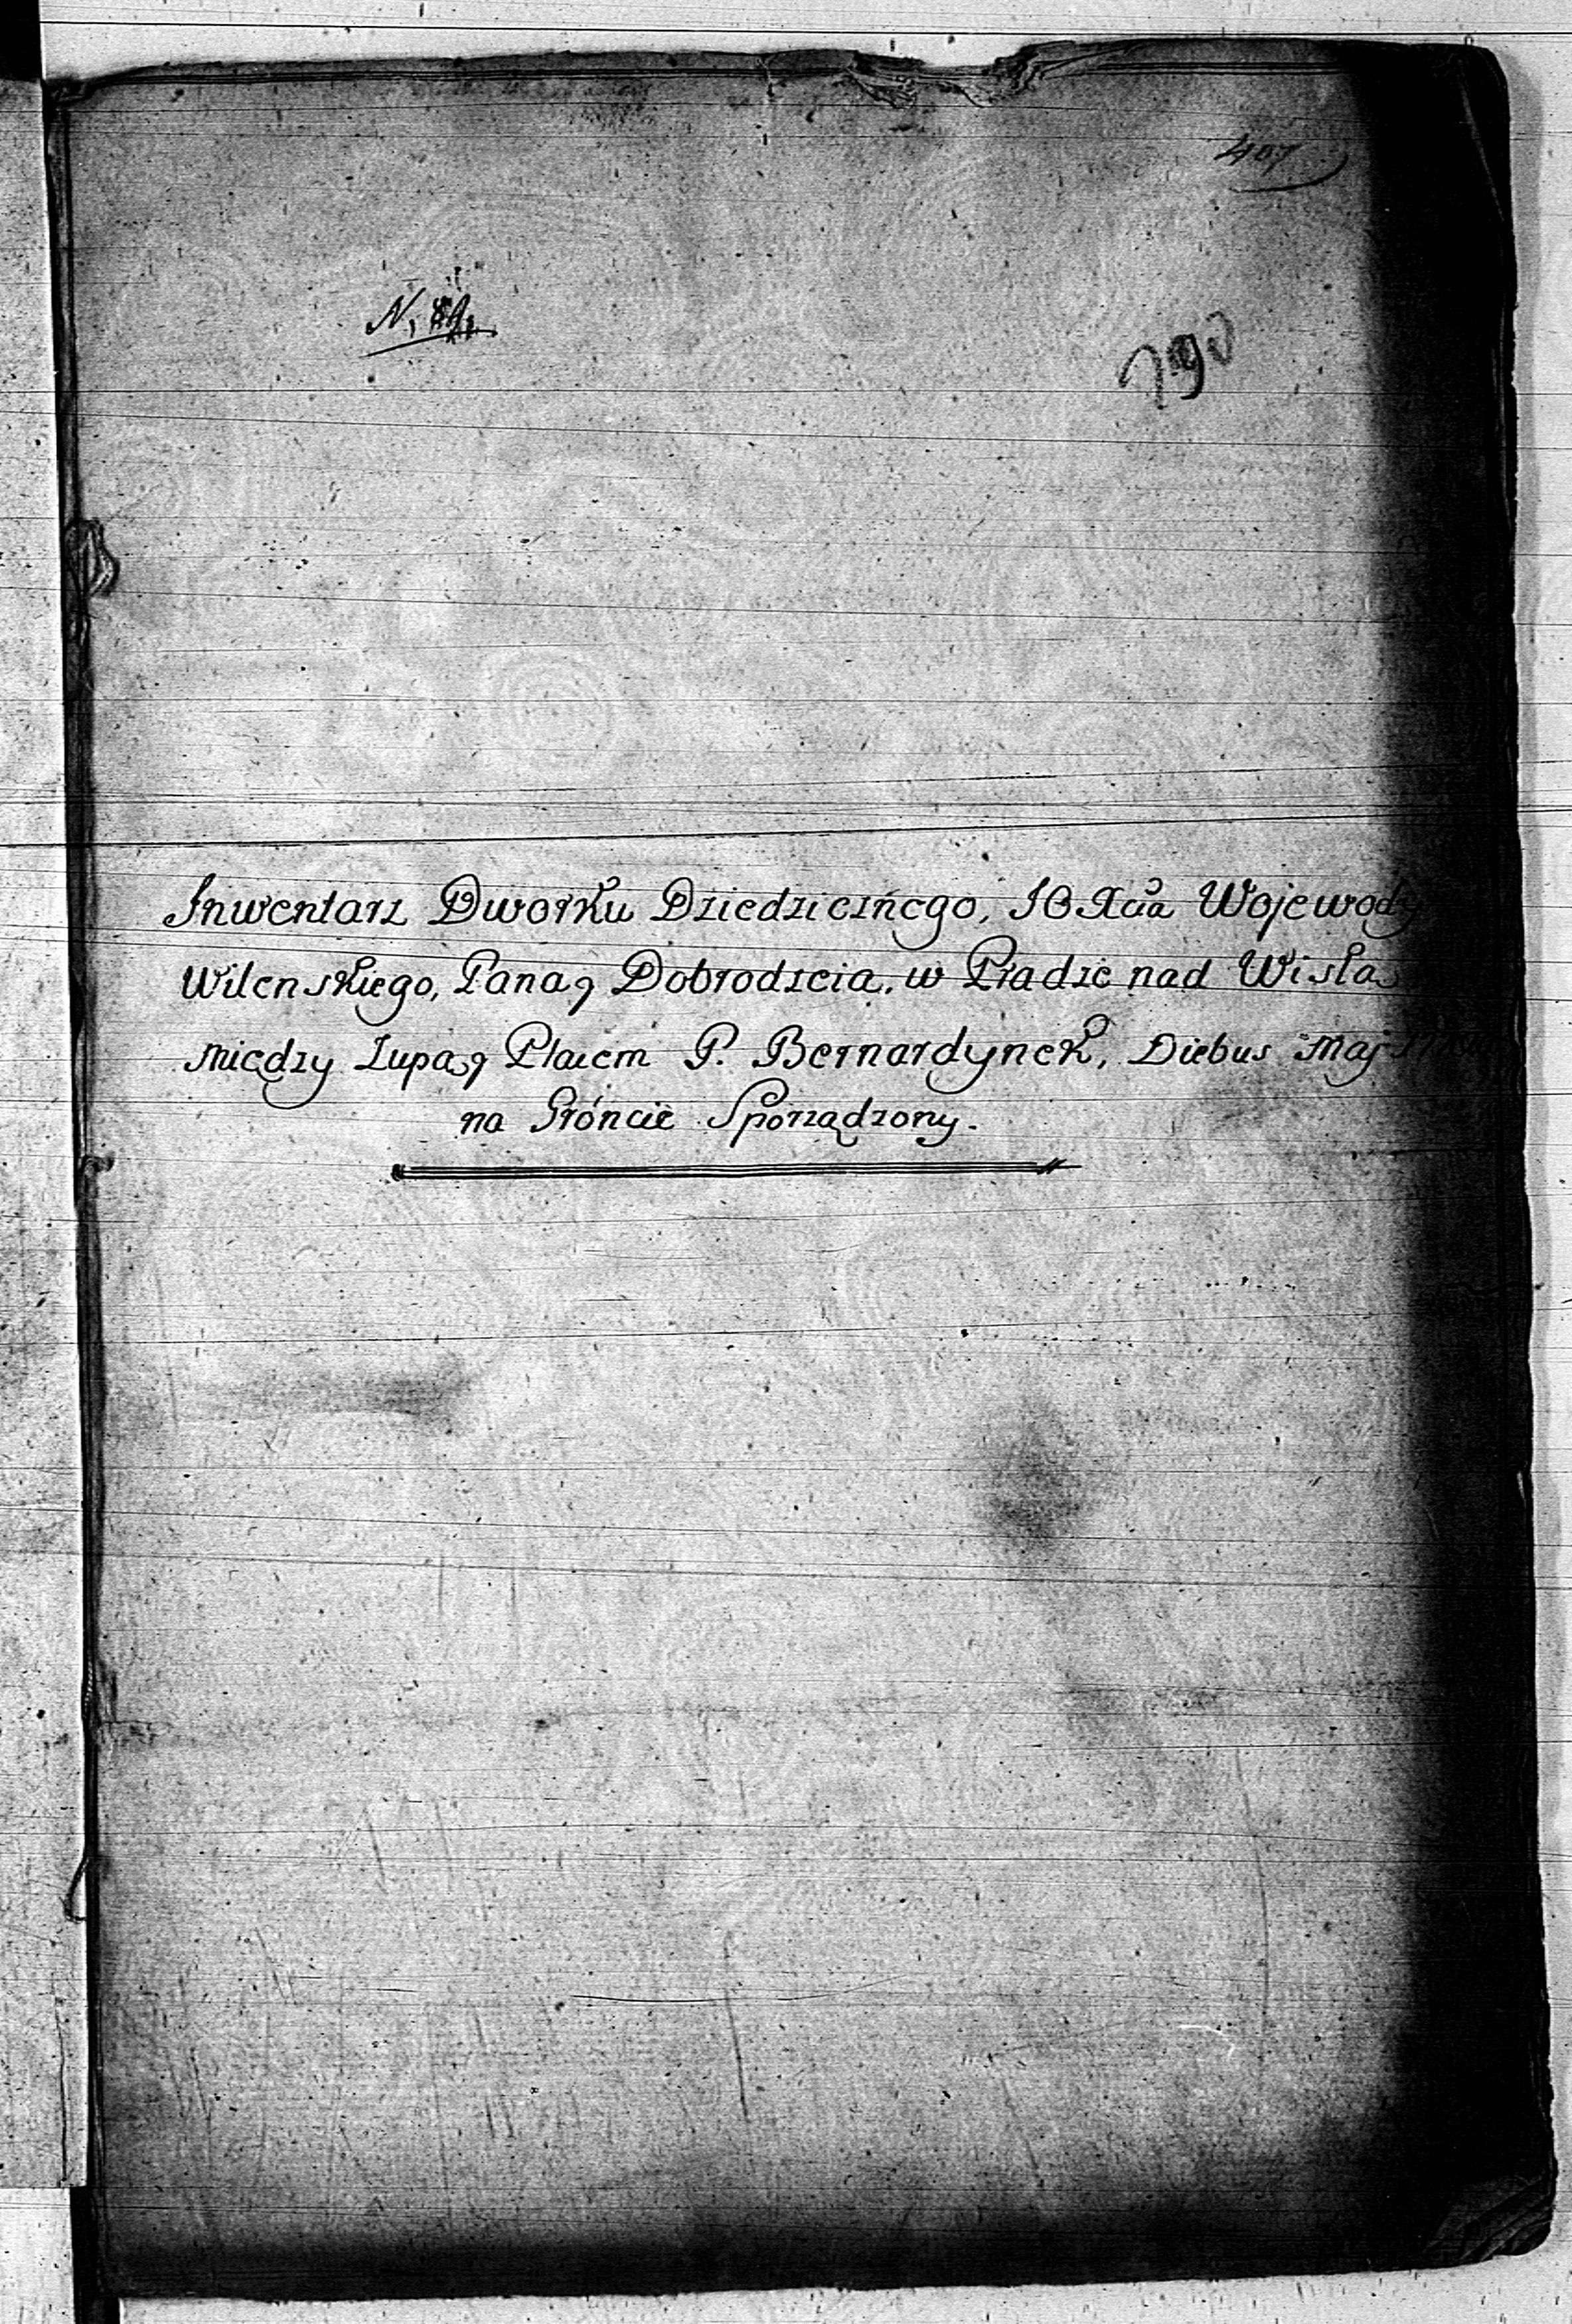 407
N,
790
Inwentarz Dworku Dziedzicznego, JO Xcia Wojewody
Wilenskiego, Pana y Dobrodzieia, w Pradze nad Wisłą
między Zupą y Placem P. Bernardynek, Diebus Maj
na Gróncie Sporządzony.